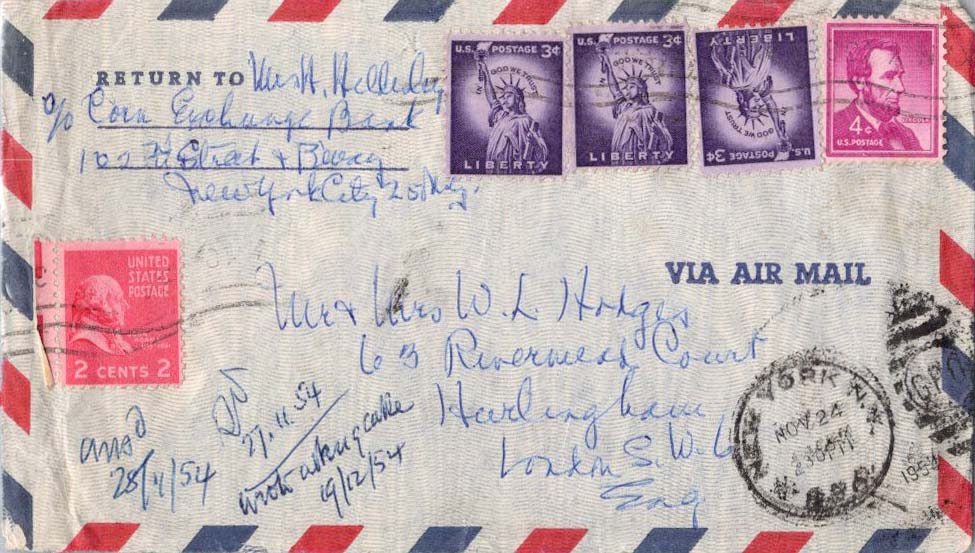 RETURN TO Mrs H.
c/o Corn Exchange Bank
102 Street & Bway
New York City 25 N.Y.
U.S. POSTAGE 3¢
IN GOD WE TRUST
LIBERTY
U.S. POSTAGE 3¢
IN GOD WE TRUST
LIBERTY
U.S. POSTAGE 3¢
IN GOD WE TRUST
LIBERTY
LINCOLN
4¢
U.S. POSTAGE
UNITED
STATES
POSTAGE
2 CENTS 2
VIA AIR MAIL
Mr & Mrs W. L. Hodges
63 Rivermead Court
Hurlingham
London S.W. 6
Eng
NEW YORK, N.Y.
NOV 24
230 PM
1954
G.P.O.
ansd
28/11/54
27.11.54
wrote asking cake
19/12/54